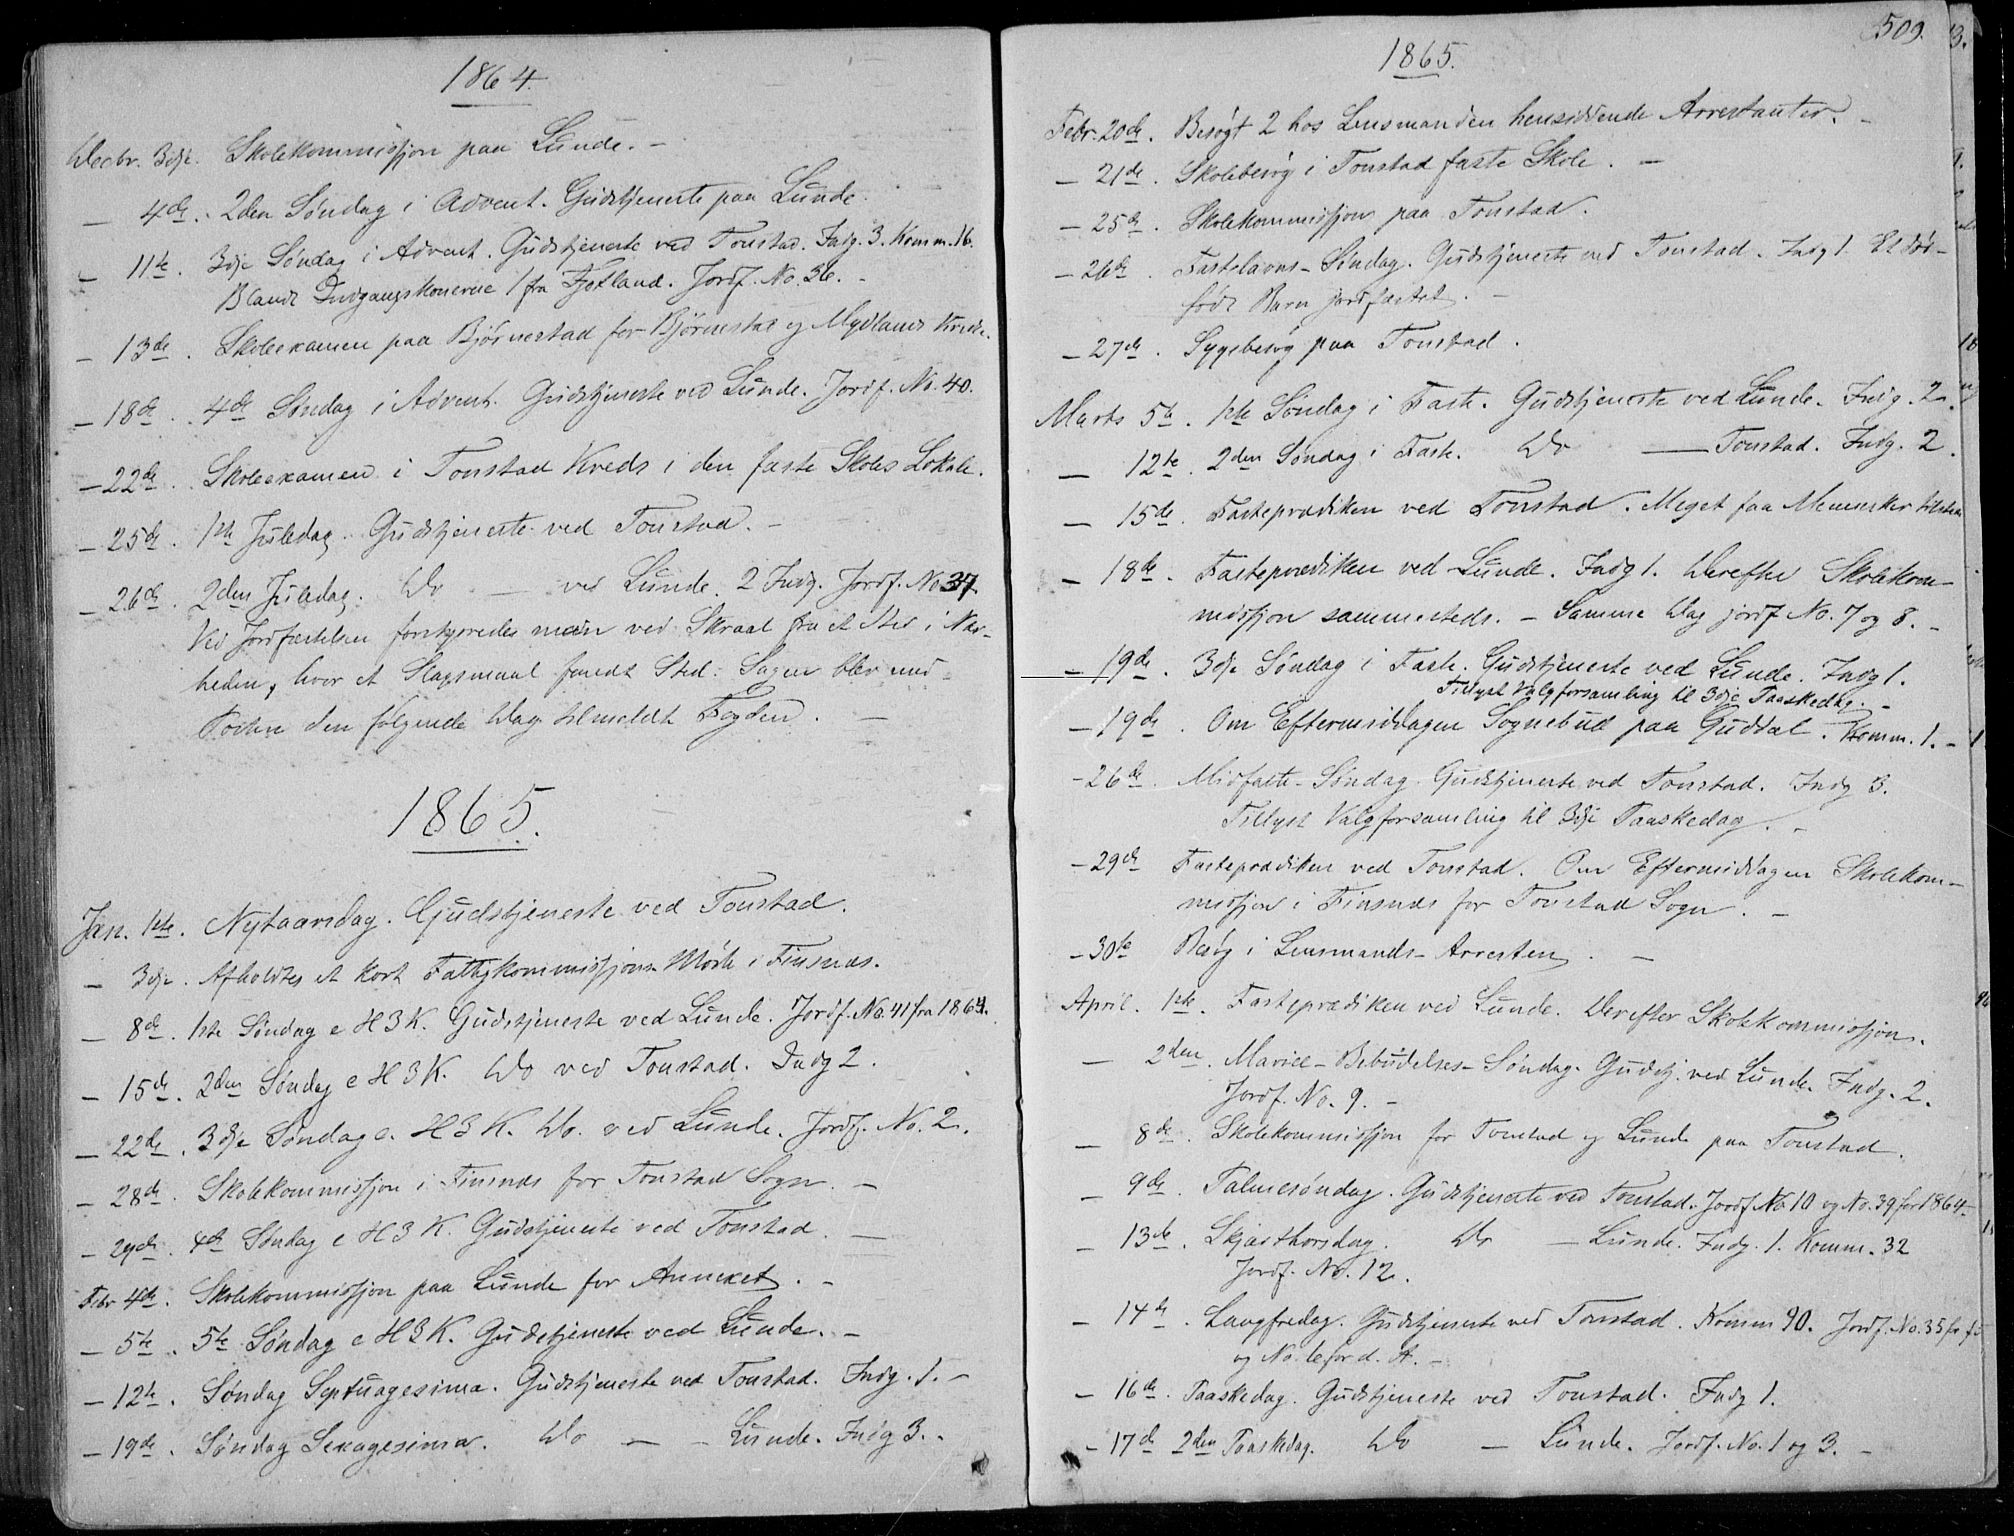 1864.
Decbr. 3dje. Skolekommissjon paa Lunde. –
– 4de. 2den Søndag i Advent. Gudstjeneste paa Lunde.
– 11te. 3dje Søndag i Advent. Gudstjeneste ved Tonstad. Indg. 3. Komm. 16.
Blandt Indgangskonerne 1 fra Fjotland. Jordf. No. 36. –
– 13de. Skoleexamen paa Bjørnestad for Bjørnestad og Mydlands Kreds.
– 18de. 4de Søndag i Advent. Gudstjeneste ved Lunde. Jordf. No. 40.
– 22de. Skoleexamen i Tonstad Kreds i den faste Skoles Lokale.
– 25de. 1ste Juledag. Gudstjeneste ved Tonstad. –
– 26de. 2den Juledag. Do – ved Lunde. 2 Indg. Jordf. No 37.
Ved Jordfæstelsen forstyrredes man ved Skraal fra et Sted i Nær-
heden, hvor et Slagsmaal fandt Sted. Sagen blev med
Posten den følgende Dag tilmeldt Fogden. –
1865.
Jan. 1ste. Nytaarsdag. Gudstjeneste ved Tonstad.
– 3dje. Afholdtes et kort Fattigkommissjons-Møde i Finsnæs.
– 8de. 1ste Søndag e H 3 K. Gudstjeneste ved Lunde. Jordf. No. 41 fra 1864.
– 15de. 2den Søndag e H 3 K. Do ved Tonstad. Indg 2.
– 22de. 3dje Søndag e. H 3 K. Do. ved Lunde. Jordf. No. 2.
– 28de. Skolekommissjon i Finsnæs for Tonstad Sogn. –
– 29de. 4de Søndag e H 3 K. Gudstjeneste ved Tonstad. –
Febr 4de. Skolekommissjon paa Lunde for Annexet. –
– 5te. 5te Søndag e H 3 K. Gudstjeneste ved Lunde. –
– 12te. Søndag Septuagesima. Gudstjeneste ved Tonstad. Indg. 1. –
– 19de. Søndag Sexagesima. Do – – Lunde. Indg 3. –
509.
1865.
Febr. 20de. Besøgt 2 hos Lensmanden hensiddende Arrestanter. –
– 21de. Skolebesøg i Tonstad faste Skole. –
– 25de. Skolekommissjon paa Tonstad.
– 26de. Fastelavns-Søndag. Gudstjeneste ved Tonstad. Indg 1. Et død-
født Barn jordfæstet. –
– 27de. Sygebesøg paa Tonstad.
Marts 5te. 1ste Søndag i Faste. Gudstjeneste ved Lunde. Indg. 2.
– 12te. 2den Søndag i Faste. Do – Tonstad. Indg. 2.
– 15de. Fasteprædiken ved Tonstad. Meget faa Mennesker tilstede
– 18de. Fasteprædiken ved Lunde. Indg 1. Derefter Skolekom-
missjon sammesteds. – Samme Dag jordf No. 7 og 8. –
– 19de. 3dje Søndag i Faste. Gudstjeneste ved Lunde. Indg 1.
Tillyst Valgforsamling til 3dje Paaskedag. –
– 19de. Om Eftermiddagen Sognebud paa Guddal. Komm. 1. –
– 26de. Midfaste-Søndag. Gudstjeneste ved Tonstad. Indg 3.
Tillyst Valgforsamling til 3dje Paaskedag. –
– 29de Fasteprædiken ved Tonstad. Om Eftermiddagen Skolekom-
missjon i Finsnæs for Tonstad Sogn. –
– 30te Besøg i Lensmands-Arresten. –
April. 1ste. Fasteprædiken ved Lunde. Derefter Skolekommissjon.
– 2den. Mariæ-Bebudelses-Søndag. Gudstj. ved Lunde. Indg. 2.
Jordf. No. 9. –
– 8de. Skolekommissjon for Tonstad og Lunde paa Tonstad.
– 9de. Palmesøndag. Gudstjeneste ved Tonstad. Jordf No 10 og No. 39 for 1864.
– 13de. Skjærthorsdag. Do – Lunde. Indg. 1. Komm. 32
Jordf. No. 12.
– 14de. Langfredag. Gudstjeneste ved Tonstad. Komm 90. Jordf. No. 35 for f
og No. 6 for d. A. –
– 16de. Paaskedag. Gudstjeneste ved Tonstad. Indg 1.
– 17de 2den Paaskedag. Do – Lunde. Jordf. No. 1 og 3. –